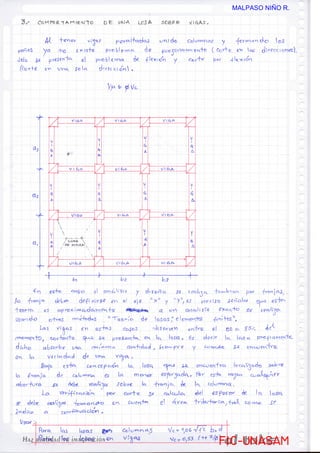 MALPASO NIÑO R.
3.- COMPORTAMIENTO DE UNA LOSA SOBRE VIGAS.
Al tener vigas peraltadas uniendo columnas y formando los
paños ya no existe problema de punzonamiento (corte en las direcciones),
solo se presenta el problema de flexión y corte por flexión
(corte en una sola dirección).
Vu ≤ φVc
VIGA VIGA VIGA
a3
VIGA VIGA VIGA
a2
VIGA VIGA VIGA
a1
VIGA VIGA VIGA
b1 b2 b3
En este caso el análisis y diseño se realiza también por franjas,
la franja debe definirse en el eje "x" y "y", es preciso señalar que esta
teoría es aproximadamente a un análisis exacto se realiza
usando otros métodos "Teoría de losas", elementos finitos".
Las vigas en estos casos absorven entre el 80 a 85% del
momento, cortante que se presenta en la losa. Es decir la losa propiamente
dicha absorbe una mínima cantidad, siempre y cuando se encuentre
en la vecindad de una viga.
Bajo esta concepción la losa que se encuentra localizada sobre
la franja de columna es la menos esforzada. Por esta razón cualquier
abertura se debe realizar sobre la franja de la columna.
La verificación por corte se calcula del espesor de la losa
se debe realizar tomando en cuenta el área tributaria, tal como se
indica a continuación.
Para las losas en columnas
Haz
vigas Vc = 0,53
FdC-UNASAM